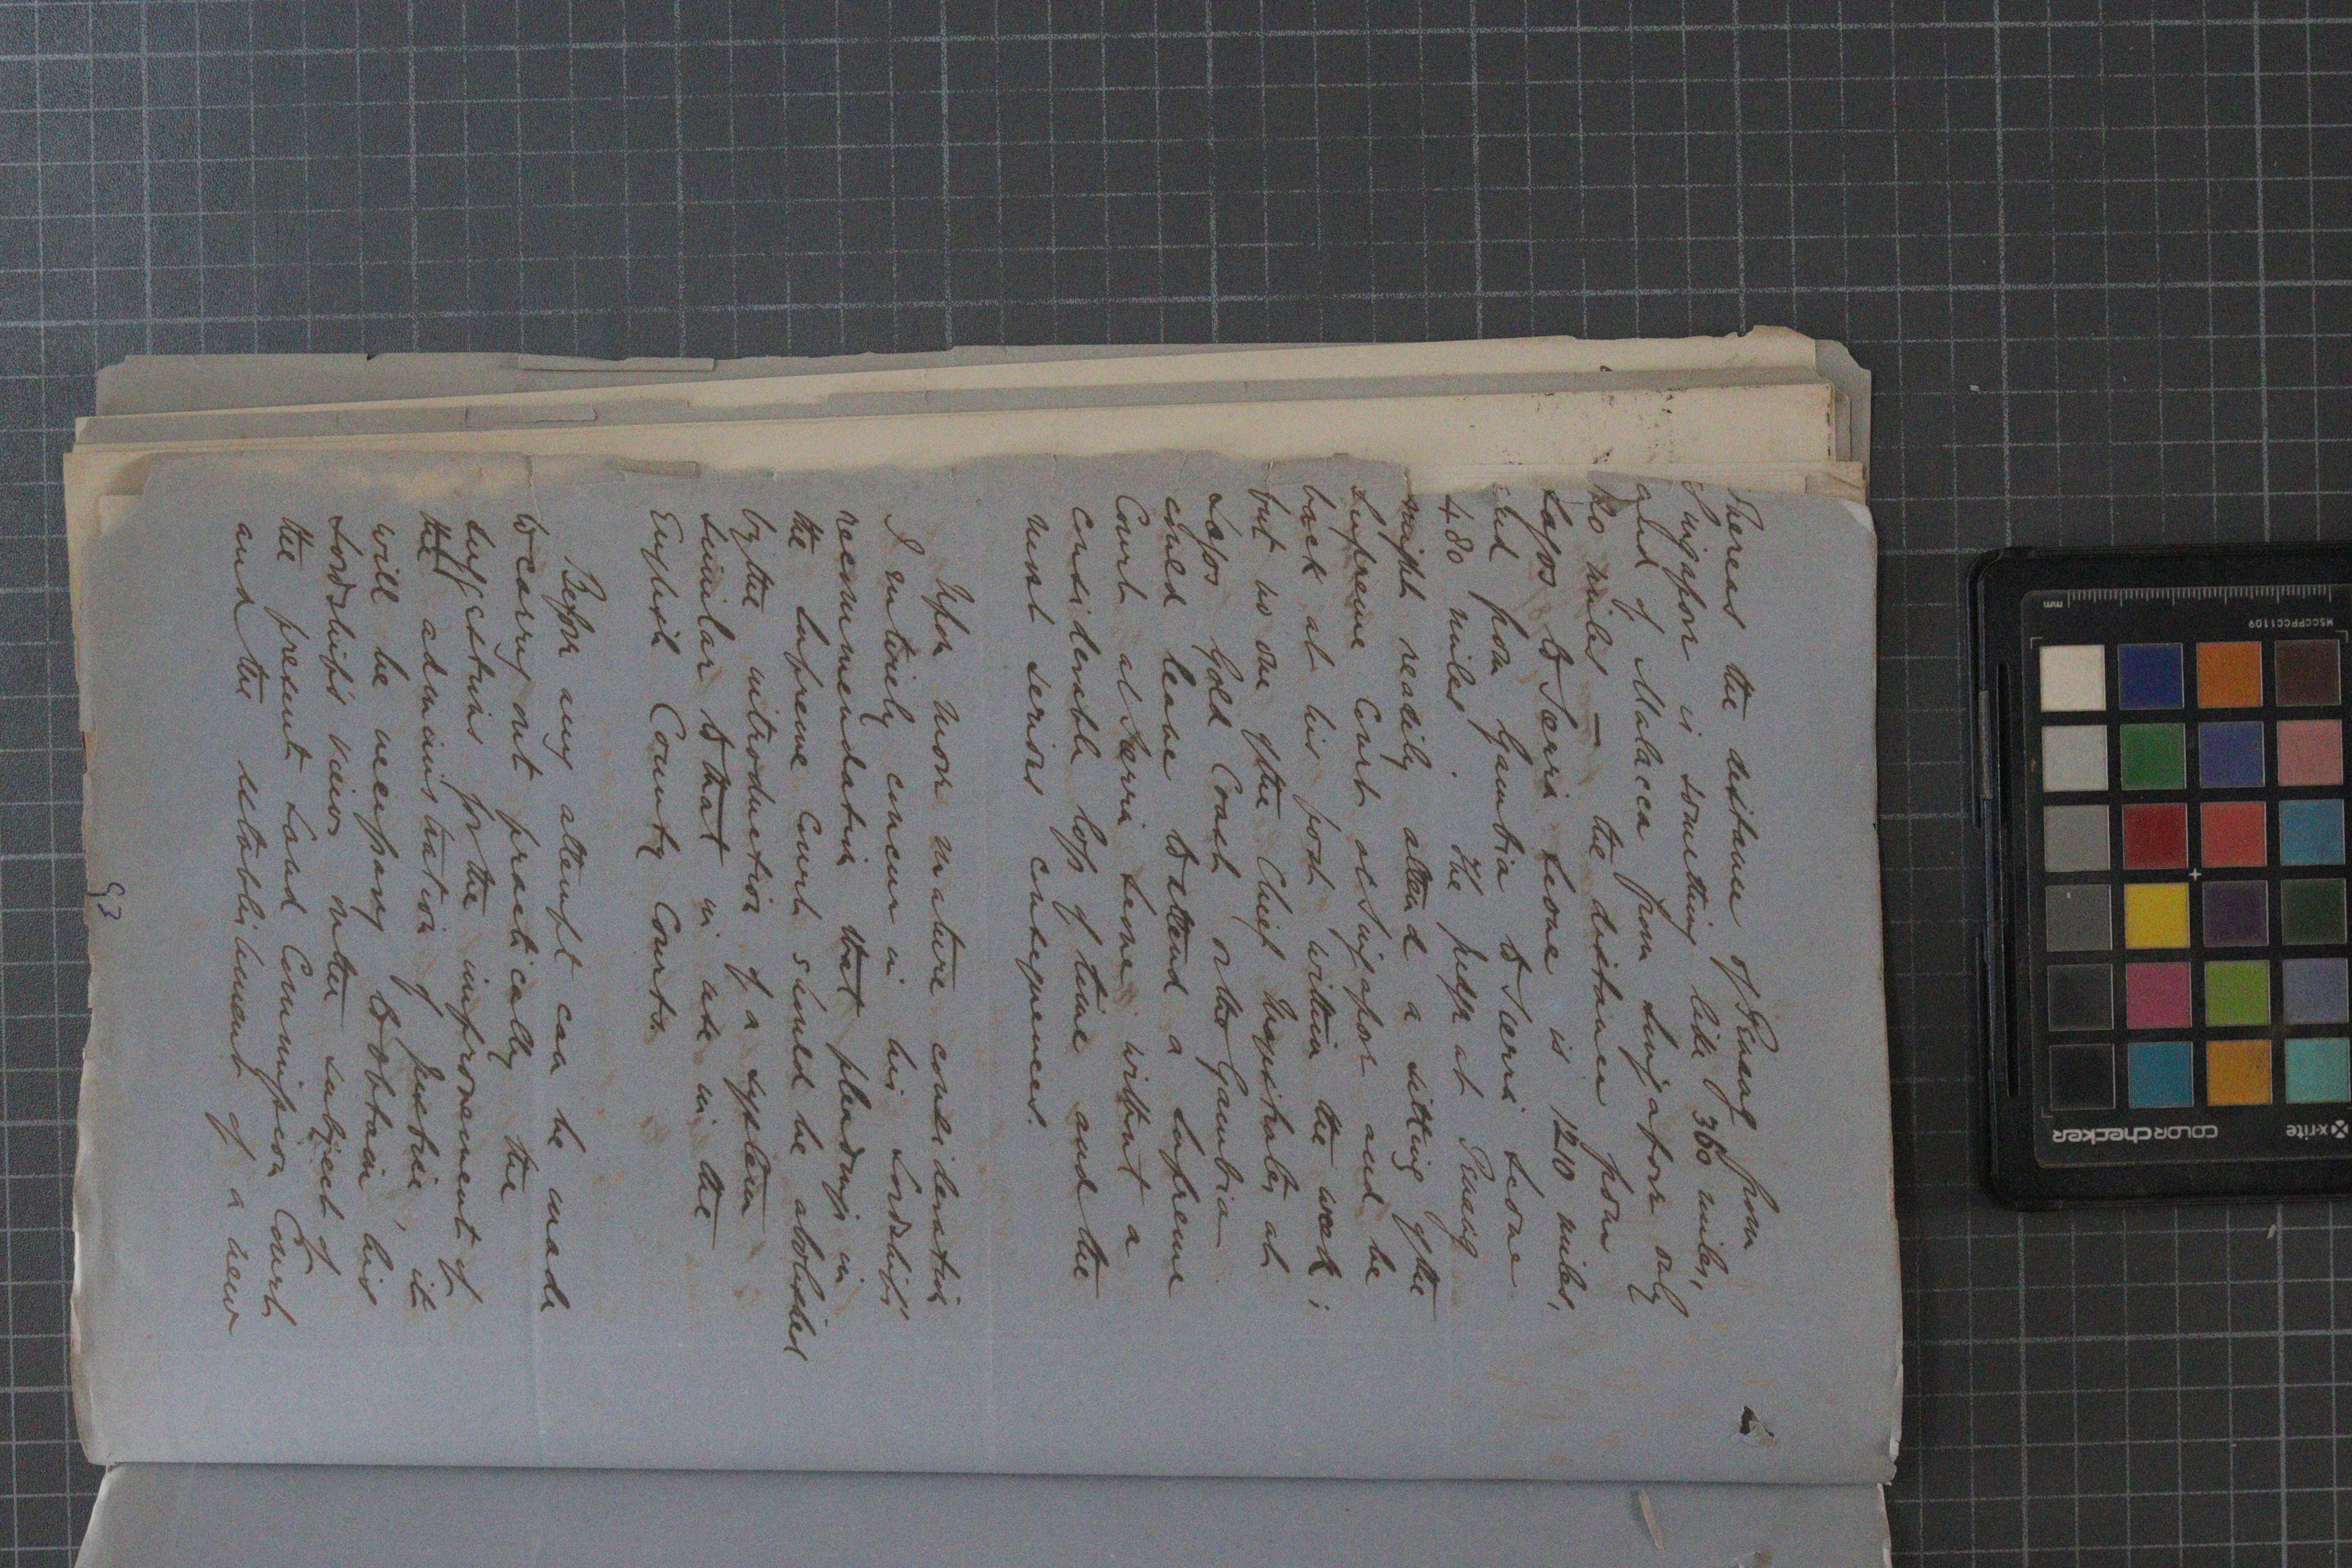 Whereas the distance of Penang from
Singapore is something like 360 miles,
and of Malacca from Singapore only
120 miles — the distance from
Lagos to Sierra Leone is 1210 miles,
and from Gambia to Sierra Leone
480 miles. The Judge at Penang
might readily attend a sitting of the
Supreme Court at Singapore and be
back at his post within the week;
but no one of the Chief Magistrates at
Lagos Gold Coast or the Gambia
could leave to attend a Supreme
Court at Sierra Leone without a
considerable loss of time and the
most serious consequences.
Upon more mature consideration
I entirely concur in his Lordship's
recommendation that pleadings in
the Supreme Court should be abolished
by the introduction of a system
similar to that in use in the
English County Courts.
Before any attempt can be made
to carry out practically the
suggestions for the improvement of
the administration of Justice, it
will be necessary to obtain his
Lordship's views on the subject of
the present Land Commission Court
and the establishment of a new
93
mm
MSCCPPCC1109
x-rite
colorchecker